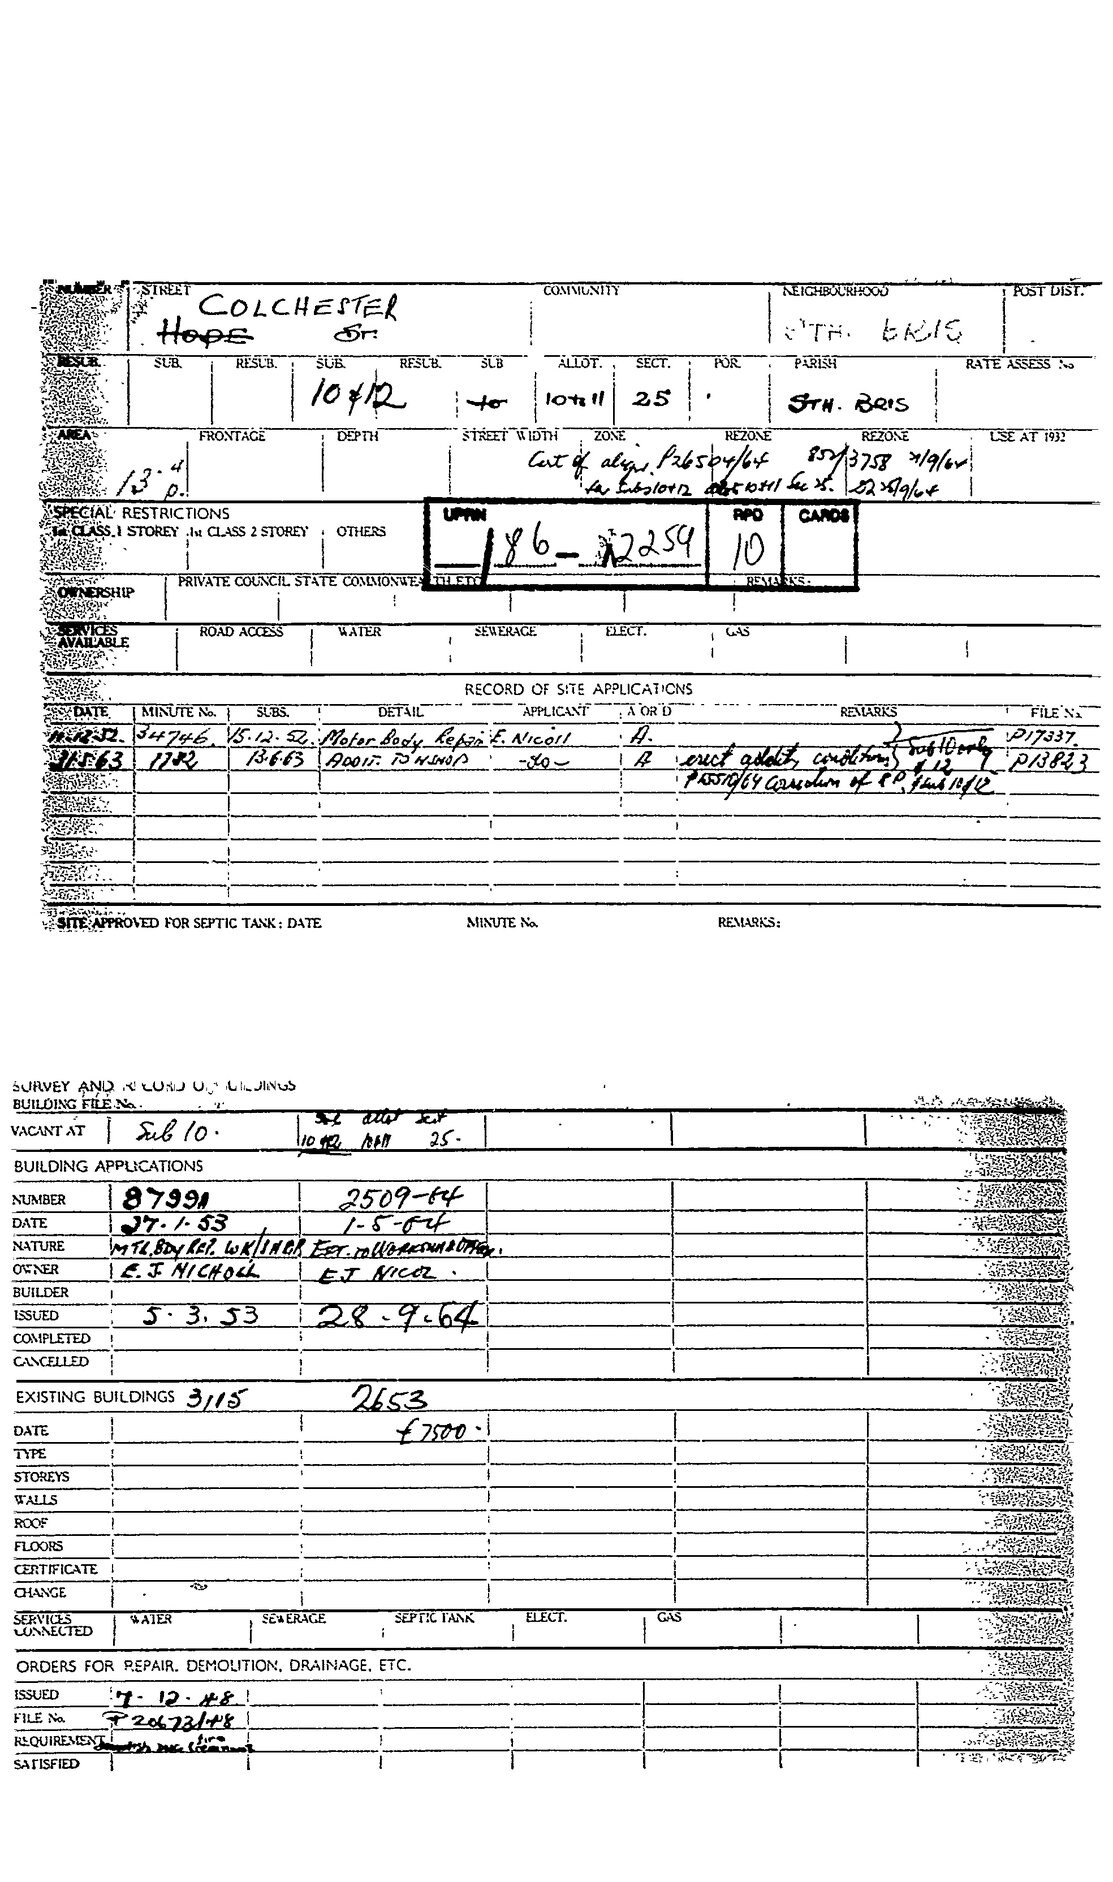 NUMBER STREET COMMUNITY NEIGHBOURHOOD POST DIST.
COLCHESTER
Hope St. STH. BRIS
RESUB. SUB. RESUB. SUB. RESUB. SUB ALLOT. SECT. POR. PARISH RATE ASSESS No
10 & 12 10 10 & 11 25 STH. BRIS
AREA FRONTAGE DEPTH STREET WIDTH ZONE REZONE REZONE USE AT 1932
Cert of align. P26504/64 852/3758 /9/64
13.4 p. for Subs 10+12 allots 10+11 Sec 25. /9/64
SPECIAL RESTRICTIONS UPRN RPD CARDS
1st CLASS 1 STOREY 1st CLASS 2 STOREY OTHERS
/ 86 - 2259 10
PRIVATE COUNCIL STATE COMMONWEALTH ETC REMARKS:
OWNERSHIP
SERVICES AVAILABLE ROAD ACCESS WATER SEWERAGE ELECT. GAS
RECORD OF SITE APPLICATIONS
DATE MINUTE No. SUBS. DETAIL APPLICANT A OR D REMARKS FILE No
.12.52. 34746. 15.12.52. Motor Body Repair E. Nicoll A. Sub 10 only P17337.
21.5.63 1782 13.6.63 ADDIT. TO W/SHOP -do- A erect conditions & 12 P13823
P 25510/64 Correction of R.P. & Sub 10/12
SITE APPROVED FOR SEPTIC TANK: DATE MINUTE No. REMARKS:
SURVEY AND RECORD OF BUILDINGS
BUILDING FILE No.
Sub allot Sect
VACANT AT Sub 10. 10 & 12 10 & 11 25.
BUILDING APPLICATIONS
NUMBER 8799A 2509-64
DATE 27.1.53 1-5-64
NATURE MTR. BDY REP. WK/SHOP EXT. TO WORKSHOP & OFFICE.
OWNER E. J NICHOLL E J NICOL.
BUILDER
ISSUED 5.3.53 28.9.64
COMPLETED
CANCELLED
EXISTING BUILDINGS 3115 2653
DATE £7500.
TYPE
STOREYS
WALLS
ROOF
FLOORS
CERTIFICATE
CHANGE
SERVICES CONNECTED WATER SEWERAGE SEPTIC TANK ELECT. GAS
ORDERS FOR REPAIR, DEMOLITION, DRAINAGE, ETC.
ISSUED 7-12-48
FILE No. P 20673/48
REQUIREMENT
SATISFIED